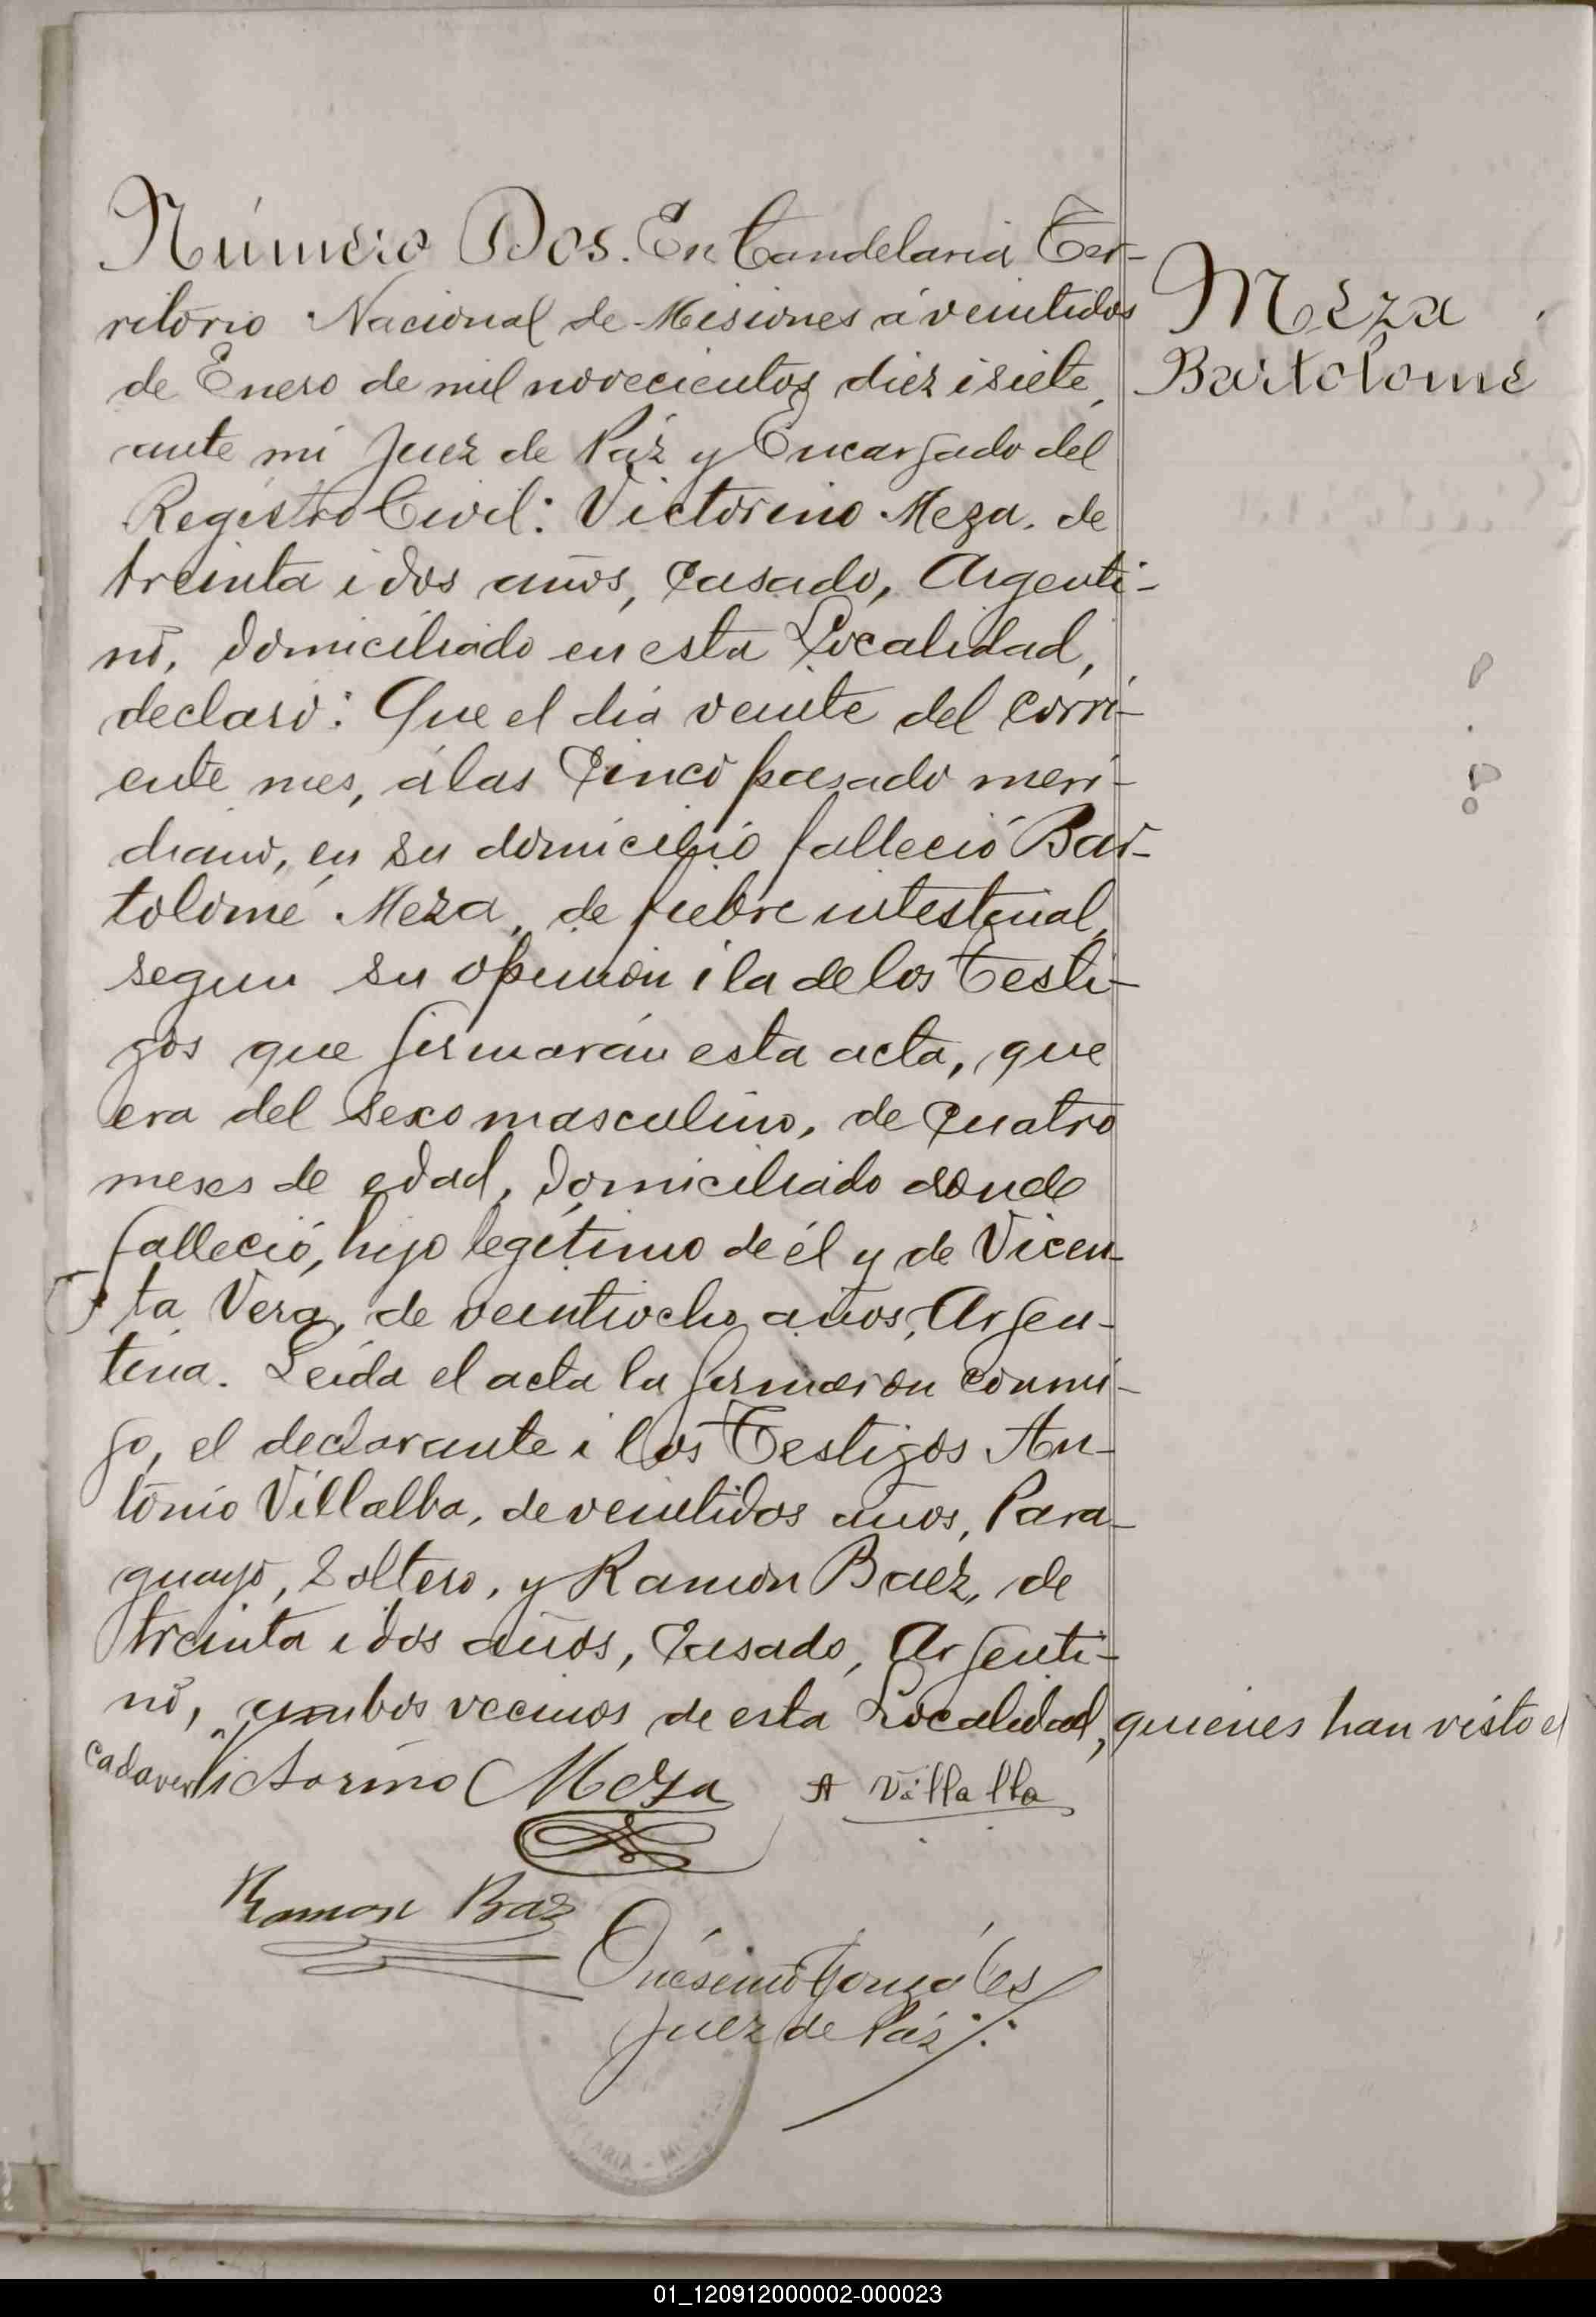 Número Dos. En Candelaria Ter-
ritorio Nacional de Misiones á veintidos
de Enero de mil novecientos diez i siete,
ante mi Juez de Páz y Encargado del
Registro Civil: Victorino Meza, de
treinta i dos años, casado, Argenti-
no, domiciliado en esta Localidad,
declaró: Que el dia veinte del corri-
ente mes, á las cinco pasado meri-
diano, en su domicilio falleció Bar-
tolomé Meza, de fiebre intestinal,
segun su opinion i la de los Testi-
gos que firmarán esta acta, que
era del sexo masculino, de cuatro
meses de edad, domiciliado donde
falleció, hijo legítimo de él y de Vicen-
ta Vera, de veintiocho años, Argen-
tina. Leida el acta la firmaron conmi-
go, el declarante i los Testigos An-
tonio Villalba, de veintidos años, Para-
guayo, Soltero, y Ramon Baez, de
treinta i dos años, casado, Argenti-
no, ambos vecinos de esta Localidad, quienes han visto el
cadaver
Victorino Meza A Villalba
Ramon Baz
Onésimo Gonzáles
Juez de Páz
Meza
Bartolomé
01_120912000002-000023